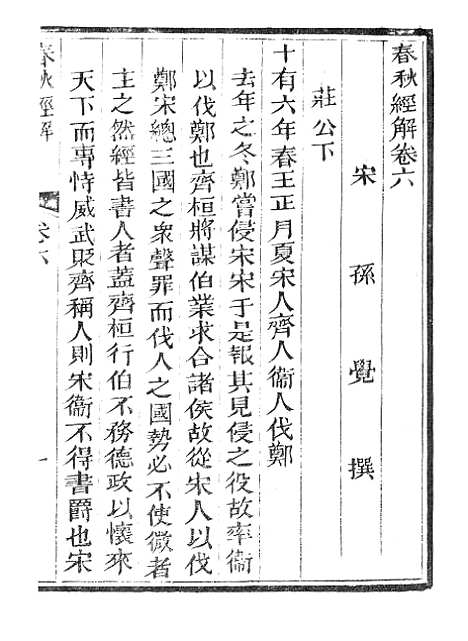 春秋經解卷六
宋 孫覺 撰
莊公下
十有六年春王正月夏宋人齊人衞人伐鄭
去年之冬鄭嘗侵宋宋于是報其見侵之役故率衞
以伐鄭也齊桓將謀伯業求合諸侯故從宋人以伐
鄭宋總三國之衆聲罪而伐人之國勢必不使微者
主之然經皆書人者蓋齊桓行伯不務德政以懷來
天下而專恃威武貶齊稱人則宋衞不得書爵也宋
春秋經解 卷六 一